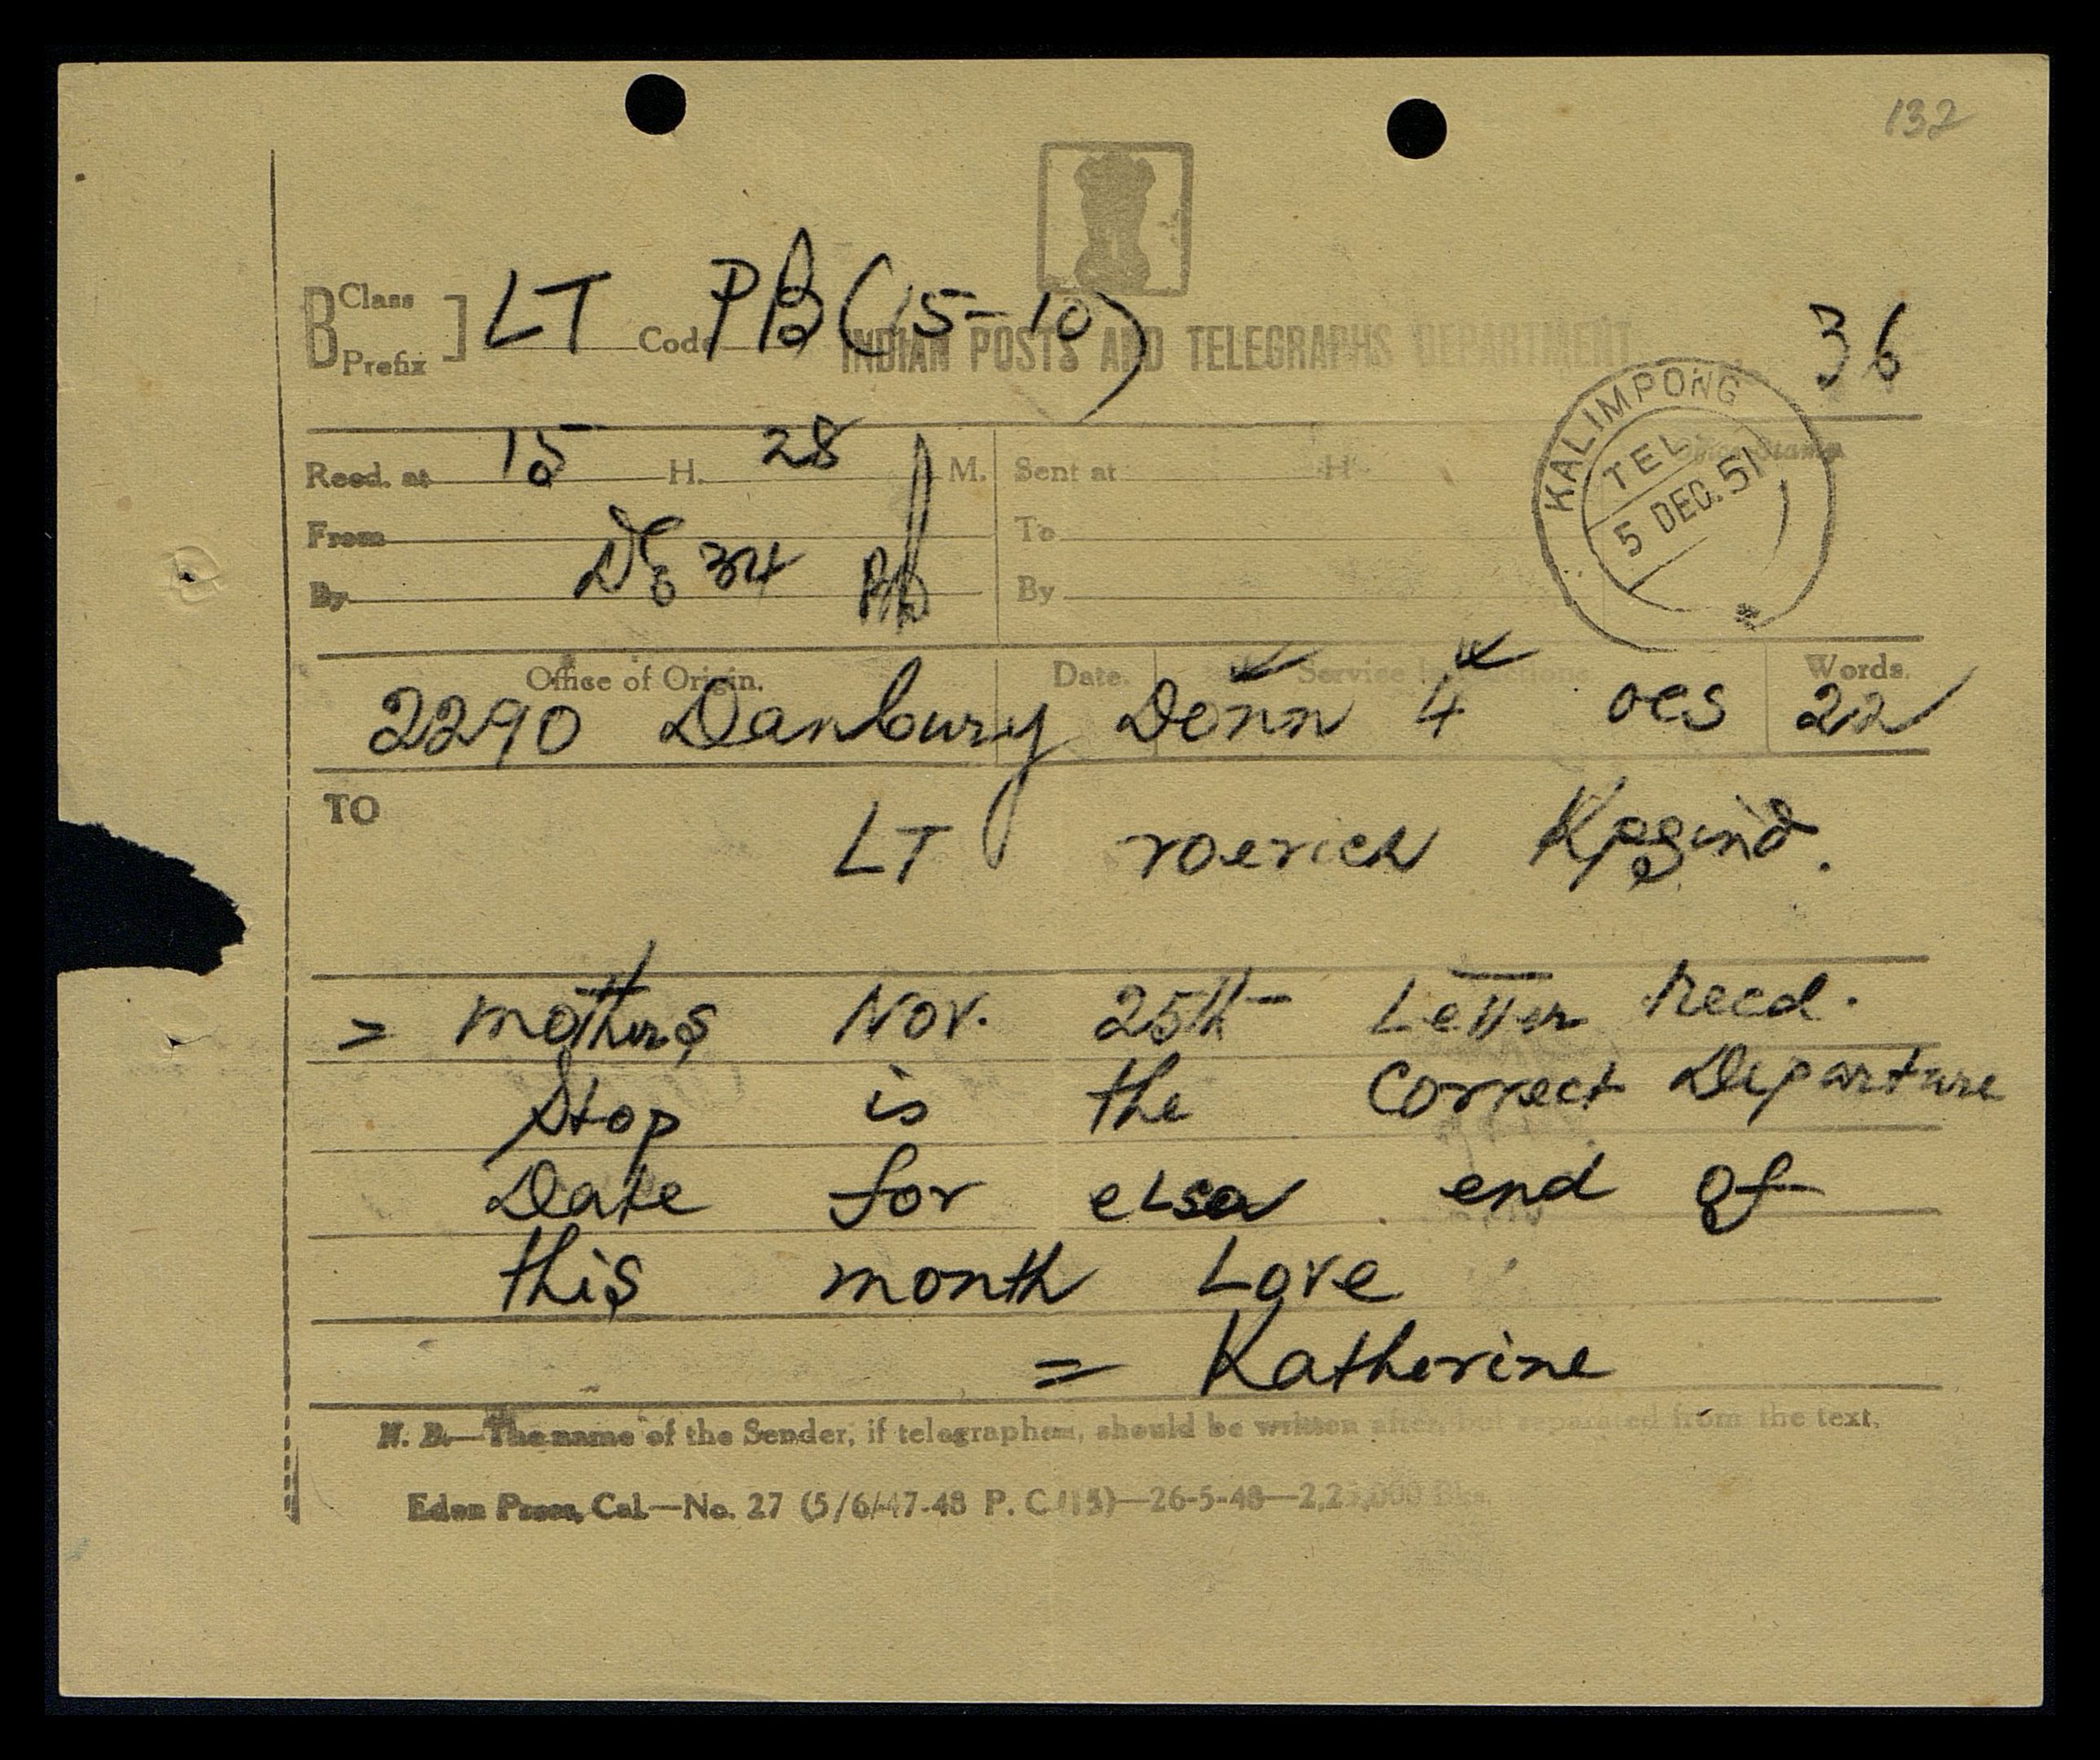 132
B Class Prefix ] LT Code PB (15-10) 36
INDIAN POSTS AND TELEGRAPHS DEPARTMENT
KALIMPONG
TEL
5 DEC. 51
Recd. at 15 H. 28 M. Sent at H.
Office Stamp
From To
By 34 By
Office of Origin. Date. Service Instructions Words.
2290 Danbury Donn 4 oes 22
TO
LT roerich Kpgind.
= mothers Nov. 25th Letter Recd.
Stop is the Correct Departure
Date for eLsa end of
this month Love
= Katherine
N. B.—The name of the Sender, if telegraphed, should be written after, but separated from the text.
Eden Press, Cal—No. 27 (5/6/47-48 P. C (15)—26-5-48—2,25,000 Bks.